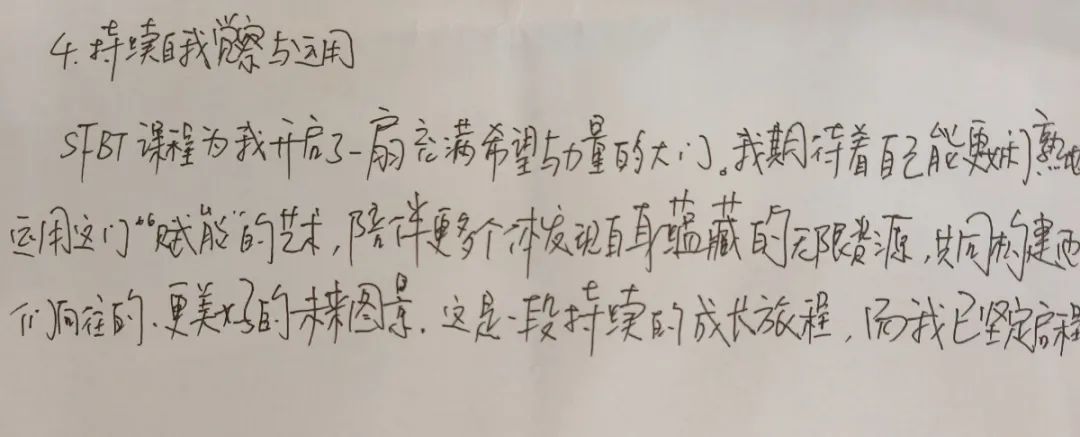 4. 持续自我觉察与运用
SFBT 课程为我开启了一扇充满希望与力量的大门。我期待着自己能更娴熟地
运用这门“赋能”的艺术,陪伴更多个体发现自身蕴藏的无限资源,共同构建
们向往的、更美好的未来图景。这是一段持续的成长旅程,而我已坚定启程